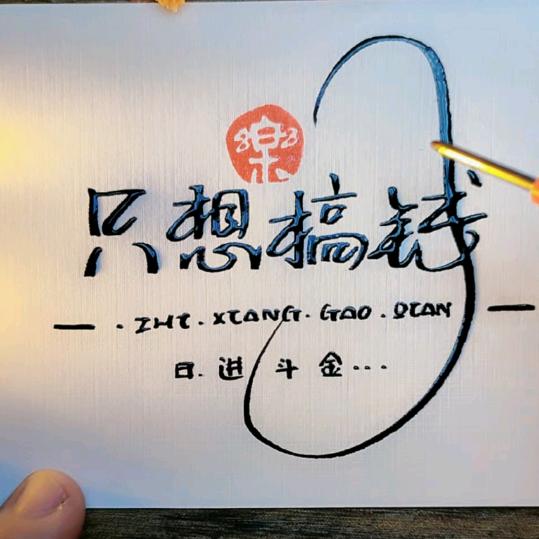 樂
只想搞钱
— · ZHI · XIANG · GAO · QIAN —
日. 进 斗 金 ...